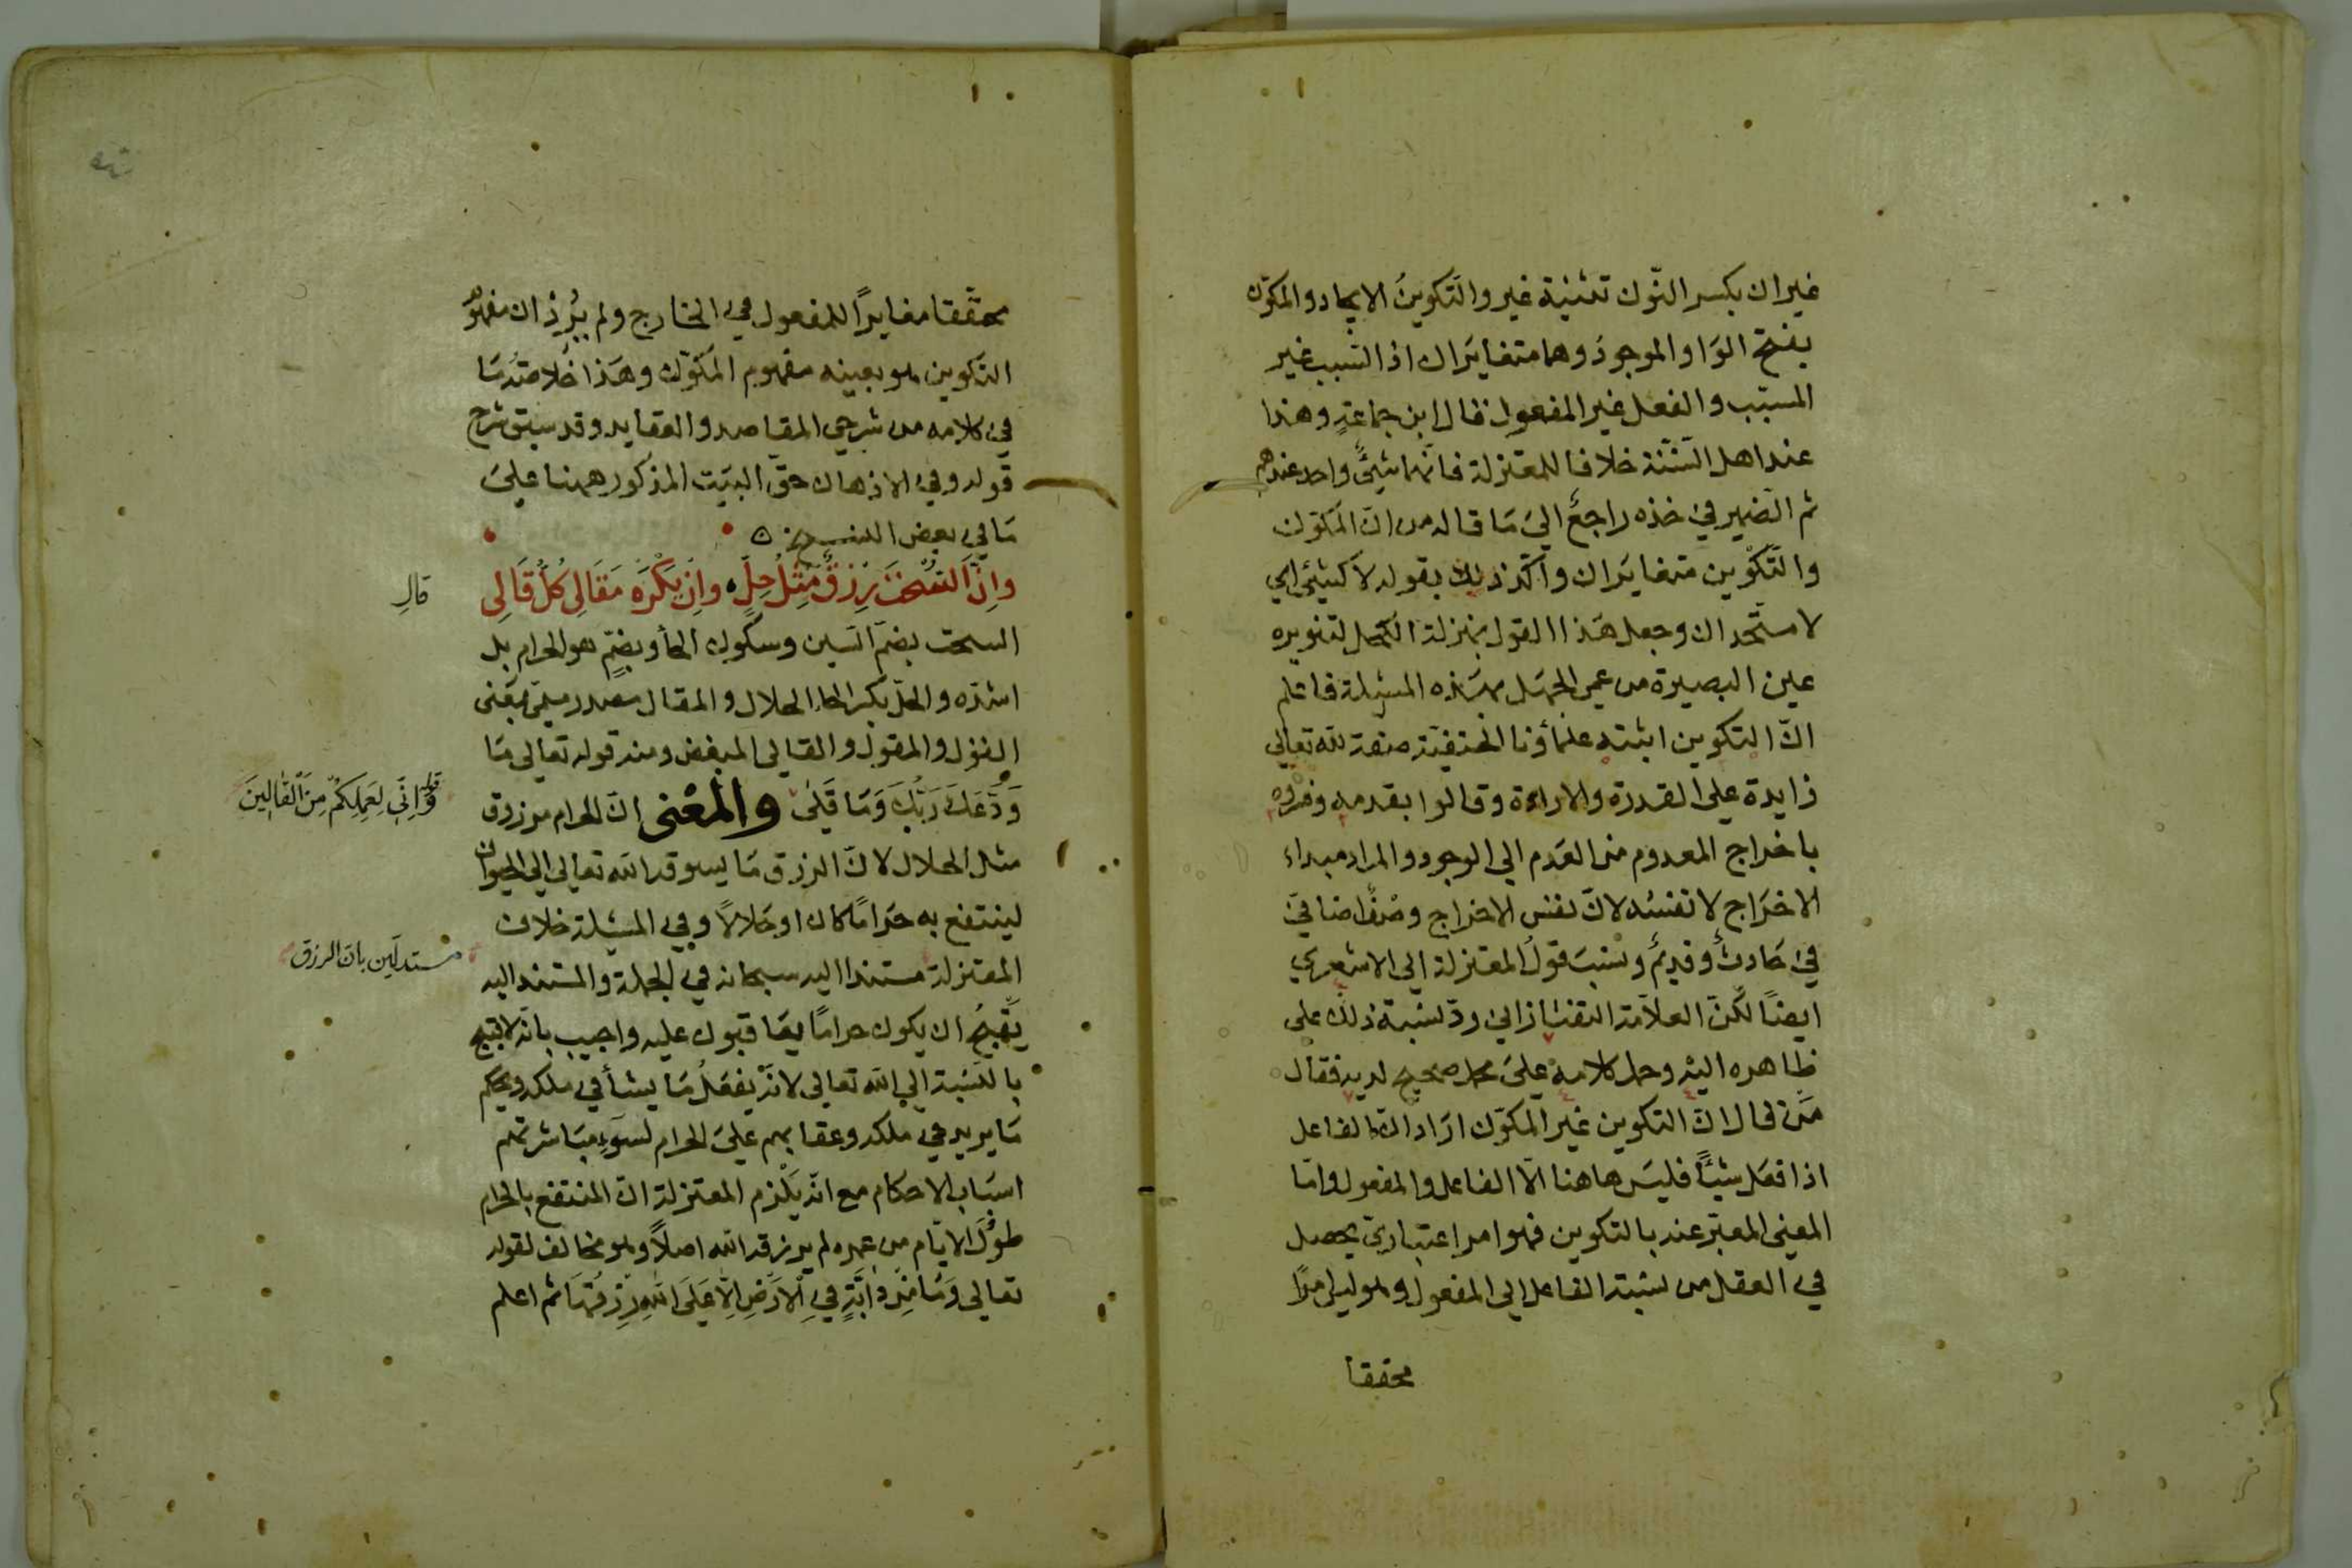 غيران بكسر النّون تثنية غير والتّكوينُ الايجاد والمكوّن
بفتح الوَاو الموجودَ وهما متغايرَان اذ السّبب غير
المسبّب والفعل غير المفعول فقال ابن جماعةٍ وهذا
عند اهل السّنّة خلافا للمعتزلة فانّهما شيئٌ واحد عندهم
ثم الضمير في خذه راجعٌ الى مَا قاله من انّ المكوّن
والتّكوين متغايرَان واكّد ذلك بقوله لا كشيئ اي
لا متّحدان وجعل هَذا القول بمنزلة الكحل لتنويره
عين البصيرة من عمى الجهَل بهَذه المسئلة فاعلم
انّ التكوين اثبته علمأونا الحنفيّة صفة لله تعالى
زايدة على القدرة والارادة وقالوا بقدمه وفسّروه
باخراج المعدوم من العَدم الى الوجود والمراد مبداء
الاخرَاج لا نفسُه لانّ نفس الاخراج وصْفٌ اضافيّ
في حَادثٌ وقديمٌ ونسبَ قولُ المعتزلة الى الاشعري
ايضًا لكنّ العلاّمة التفتازاني ردّ نسبة ذلك على
ظاهره اليْه وحمل كلامه علىَ محمل صحيح لديه فقال
مَن قال انّ التكوين غير المكوّن ارَاد انّ الفاعل
اذا فعَل شيئًا فليسَ هاهنا الّا الفاعل والمفعول وامّا
المعنى المعبّر عنه بالتكوين فهو امر اعتباريّ يحصل
في العقل من نسبة الفاعل الى المفعول وهو ليس امرًا
محققا
محقّقا مغايرًا للمفعول في الخارج ولم يُرِد ان مفهوم
التكوين هو بعينه مفهوم المكَوّن وهَذا خلاصَة مَا
في كلامه من شرحي المقاصد والعقايد وقد سبق شرح
قوله وفي الاذهان حقّ البيَت المذكور ههنا علىَ
مَا في بعض النسخ
وانّ السُّحْتَ رِزْقٌ مِّثْلُ حِلٍّ وانْ يَكْرَه مَقَالِي كُلُّ قَالِي
قالِ
السحت بضمّ السّين وسكون الحأ وبضمٍّ هو الحرام بل
اشدّه والحلّ بكسر الحا الحلال والمقال مصدر ميميّ بمَعنى
القول والمقول والقالي المبغض ومنه قوله تعالى مَا
وَدَّعَكَ رَبُّكَ وَمَا قَلَىٰ والمعْنى انّ الحرام مرزوق
وقوله اِنِّي لِعَمَلِكُمْ مِنَ القَالِينَ
مثل الحلال لانّ الرزق مَا يسوقه الله تعالى الى الحيوان
لينتفع به حرَامًا كان او حَلالاً وفي المسْئلة خلاف
مستدلّين بانّ الرزق
المعتزلة مستندا اليه سبحانه في الجملة والمستند اليه
يَقْبحُ ان يكون حرامًا يعَاقبون عليه واجيب بانّه لا يقبح
بالنّسبَة الى الله تعالى لانّه يفعَلُ مَا يشأ في ملكه ويحكم
مَا يريد في ملكه وعقابهم علىَ الحرام لسوءِ مبَاشرتهم
اسبَاب الاحكام مع انّه يَلْزم المعتزلة انّ المنتفع بالحرام
طولَ الايّام من عمره لم يرزقه الله اصلاً وهو مخالف لقوله
تعالى وَمَا مِنْ دَابَّةٍ فِي الْاَرْضِ اِلَّا عَلَى اللهِ رِزْقُهَا ثم اعلم